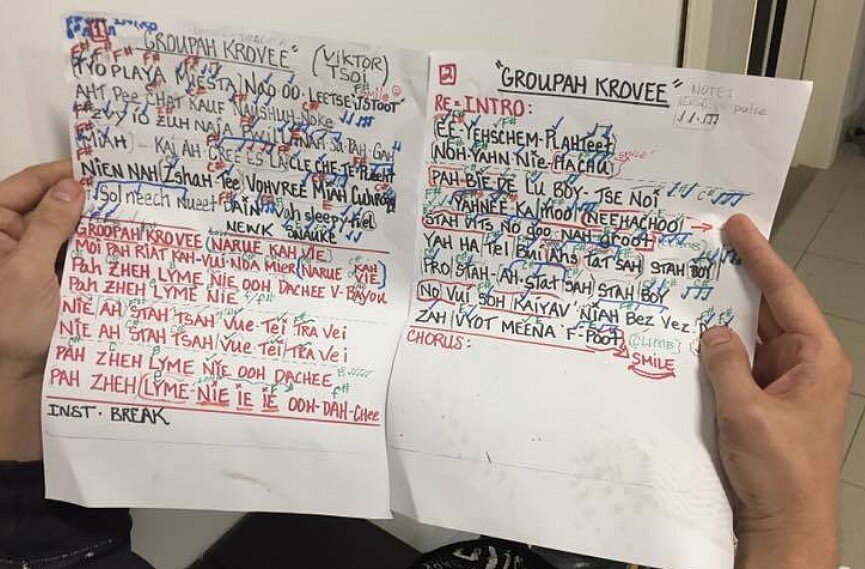 1
"GROUPAH KROVEE" (VIKTOR TSOI)
TYO PLAYA MIESTA NAO OO LEETSEI JSTOOT
AHT Pee CHAT KAUF NAISHUH Noke
ZVYIO ZUH NAJA PWILL NAH SA-PAH-GAH
KIAH - KAI AH GREE ES LA CLE CHE TE PLAEHT
NIEN NAH ZshaH-Tee VOHVREE MIAH
sol neech nueet DAIN Vah sleepy
NEWK SNAUKE
GROOPAH KROVEE (NARUE KAH VIE
MOI PAH RIAT KAH-VUI-NOA MIER (NARUE KAH VIE
PAH ZHEH LYME NIE OOH DACHEE V-BAYOU
PAH ZHEH LYME NIE
NIE AH STAH TSAH VUE TEI TRA VEI
NIE AH STAH TSAH VUE TEI TRA VEI
PAH ZHEH LYME NIE OOH DACHEE
PAH ZHEH LYME NIE IE IE OOH-DAH-CHee
INST. BREAK
2
"GROUPAH KROVEE"
NOTE:
pulse
RE-INTRO:
EE-YEHSCHEM-PLAHTEET
NOH-YAHN Nie-HACHU
PAH-BIE DE LU BOY-TSE NOI
YAHNEE KAMOOI (NEEHACHOO)
STAH VITS NO goo NAH grooT (CLIMB)
YAH HA TEI BUI AHS TAT SAH STAH BOY
PRO STAH-AH-STAT SAH STAH BOY
NO VUI SOH KAIYAV' NIAH BEZ VEZ
ZAH VYOT MEENA F-POOT (CLIMB)
CHORUS:
SMILE